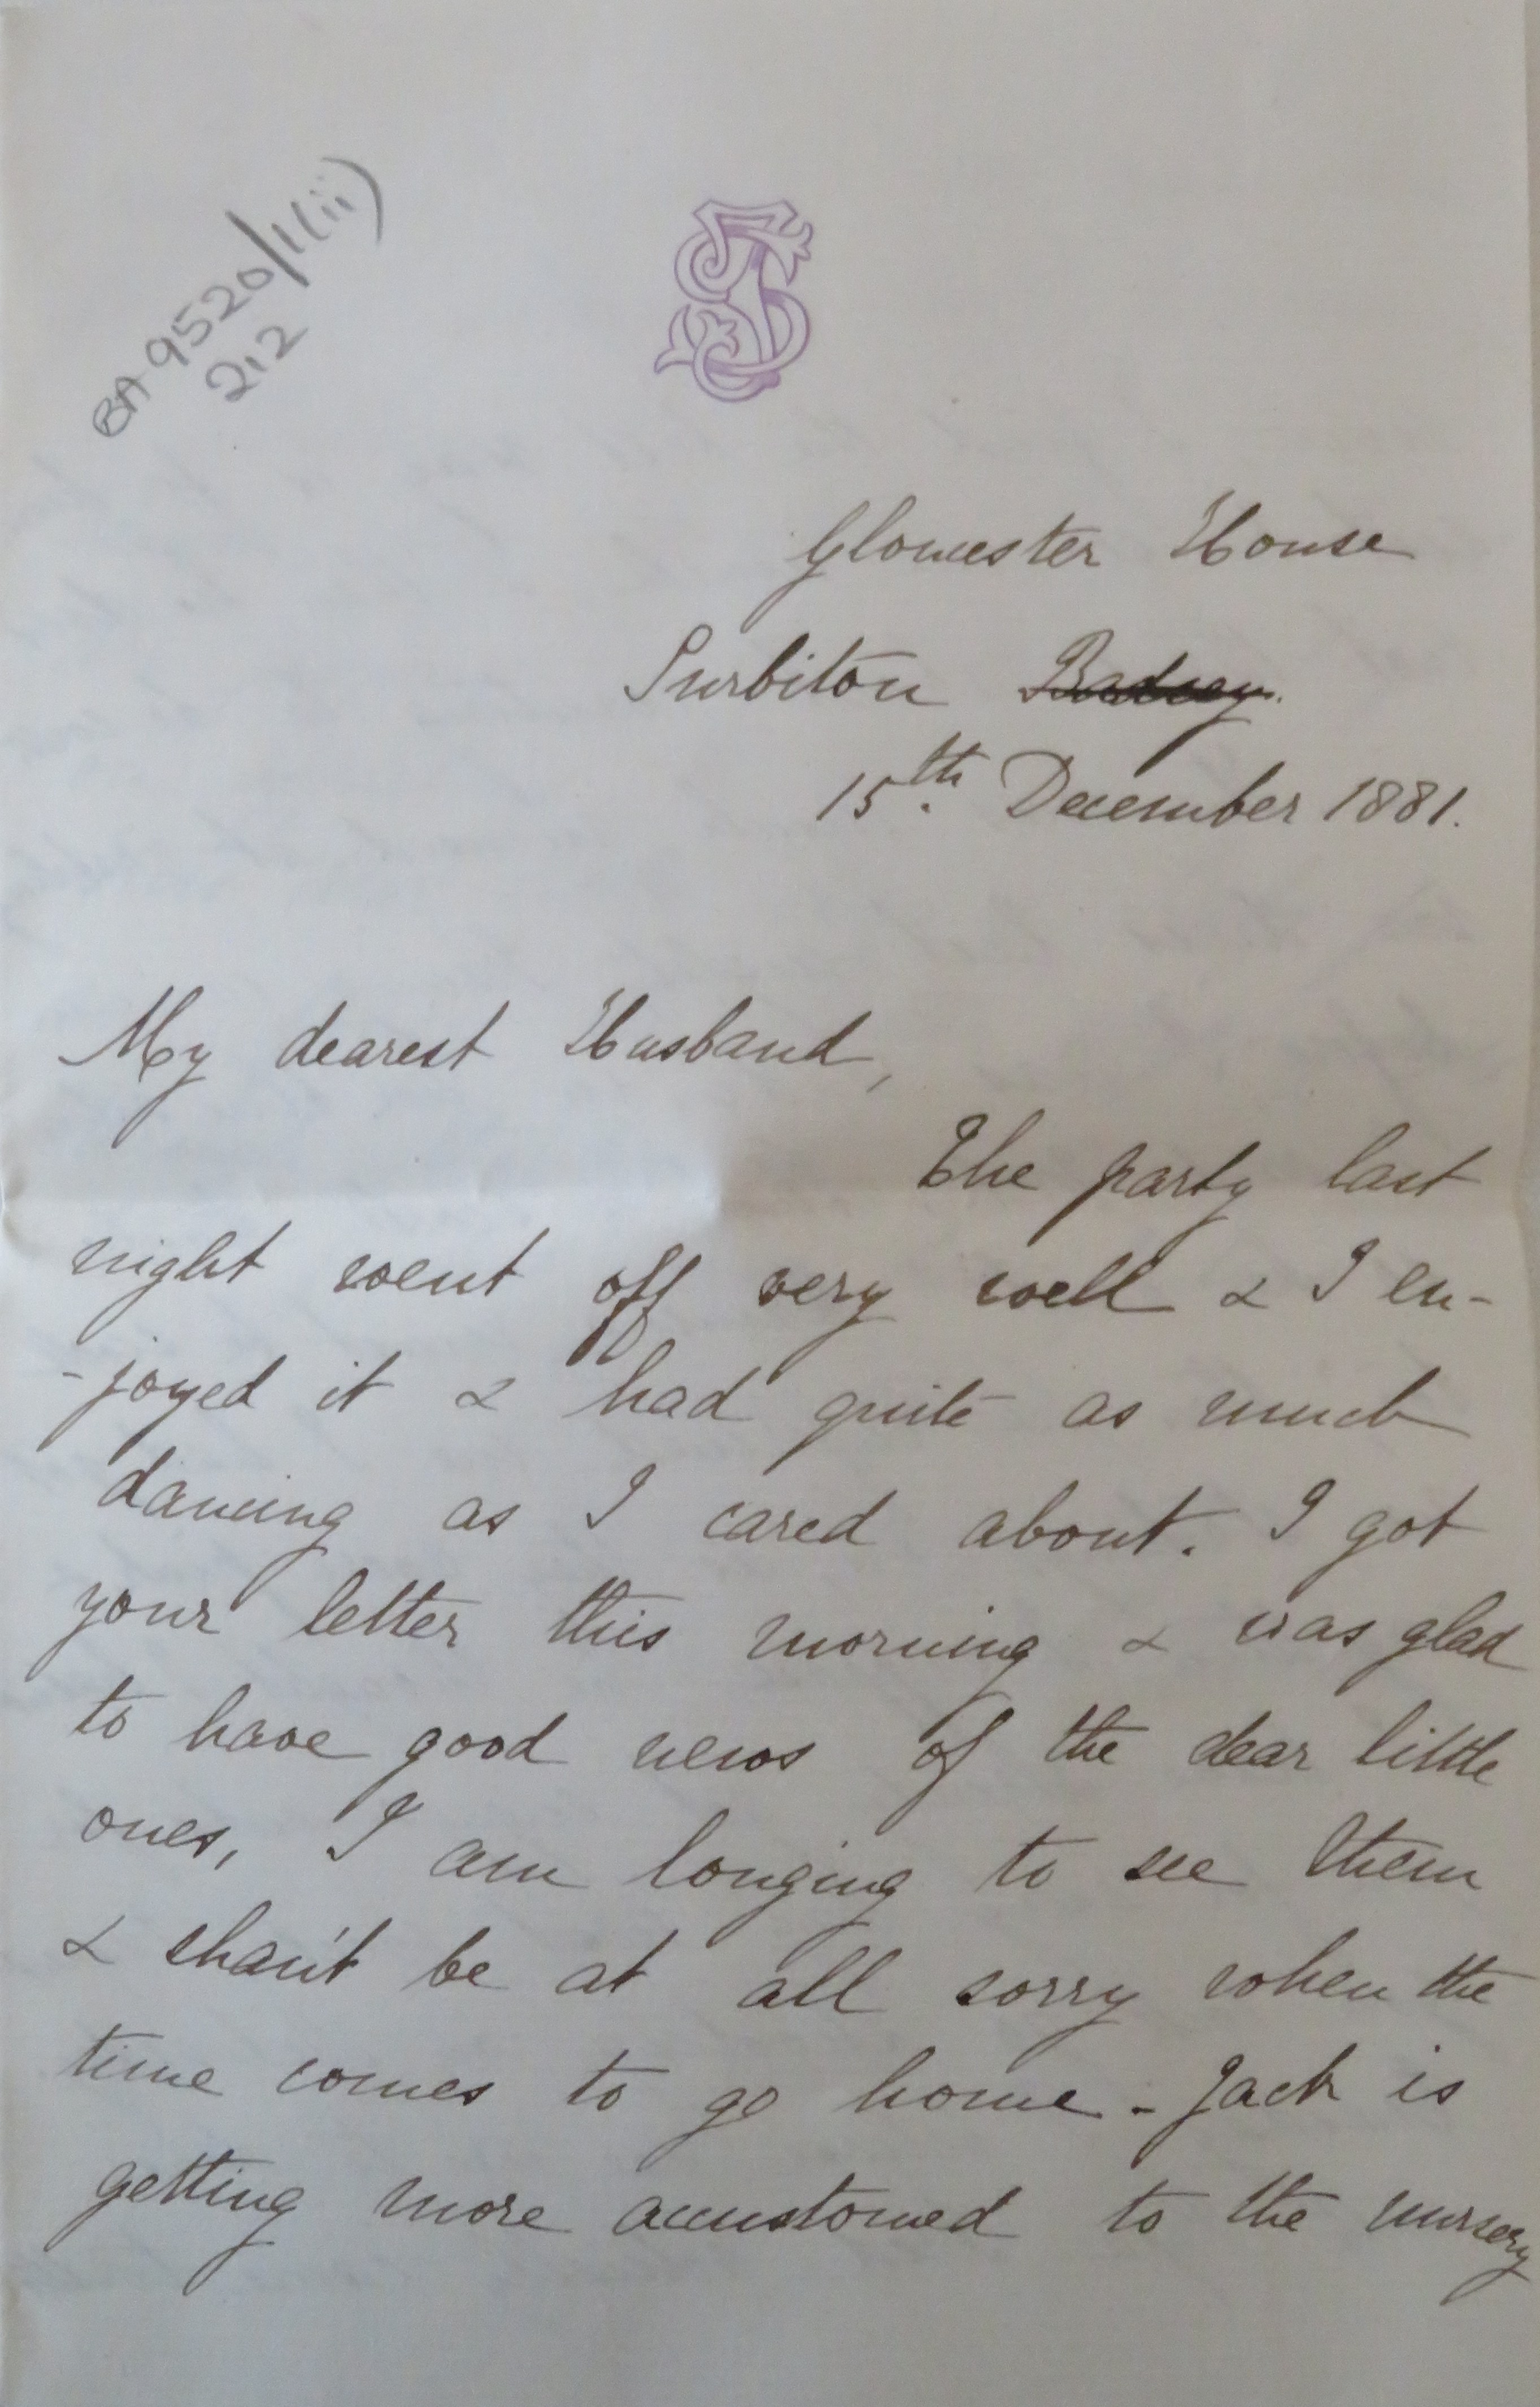 BA 9520/1(ii)
212
Gloucester House
Surbiton Badsey.
15th. December 1881.
My dearest Husband,
The party last
night went off very well & I en-
-joyed it & had quite as much
dancing as I cared about. I got
your letter this morning & was glad
to have good news of the dear little
ones, I am longing to see them
& shan't be at all sorry when the
time comes to go home - Jack is
getting more accustomed to the nursery